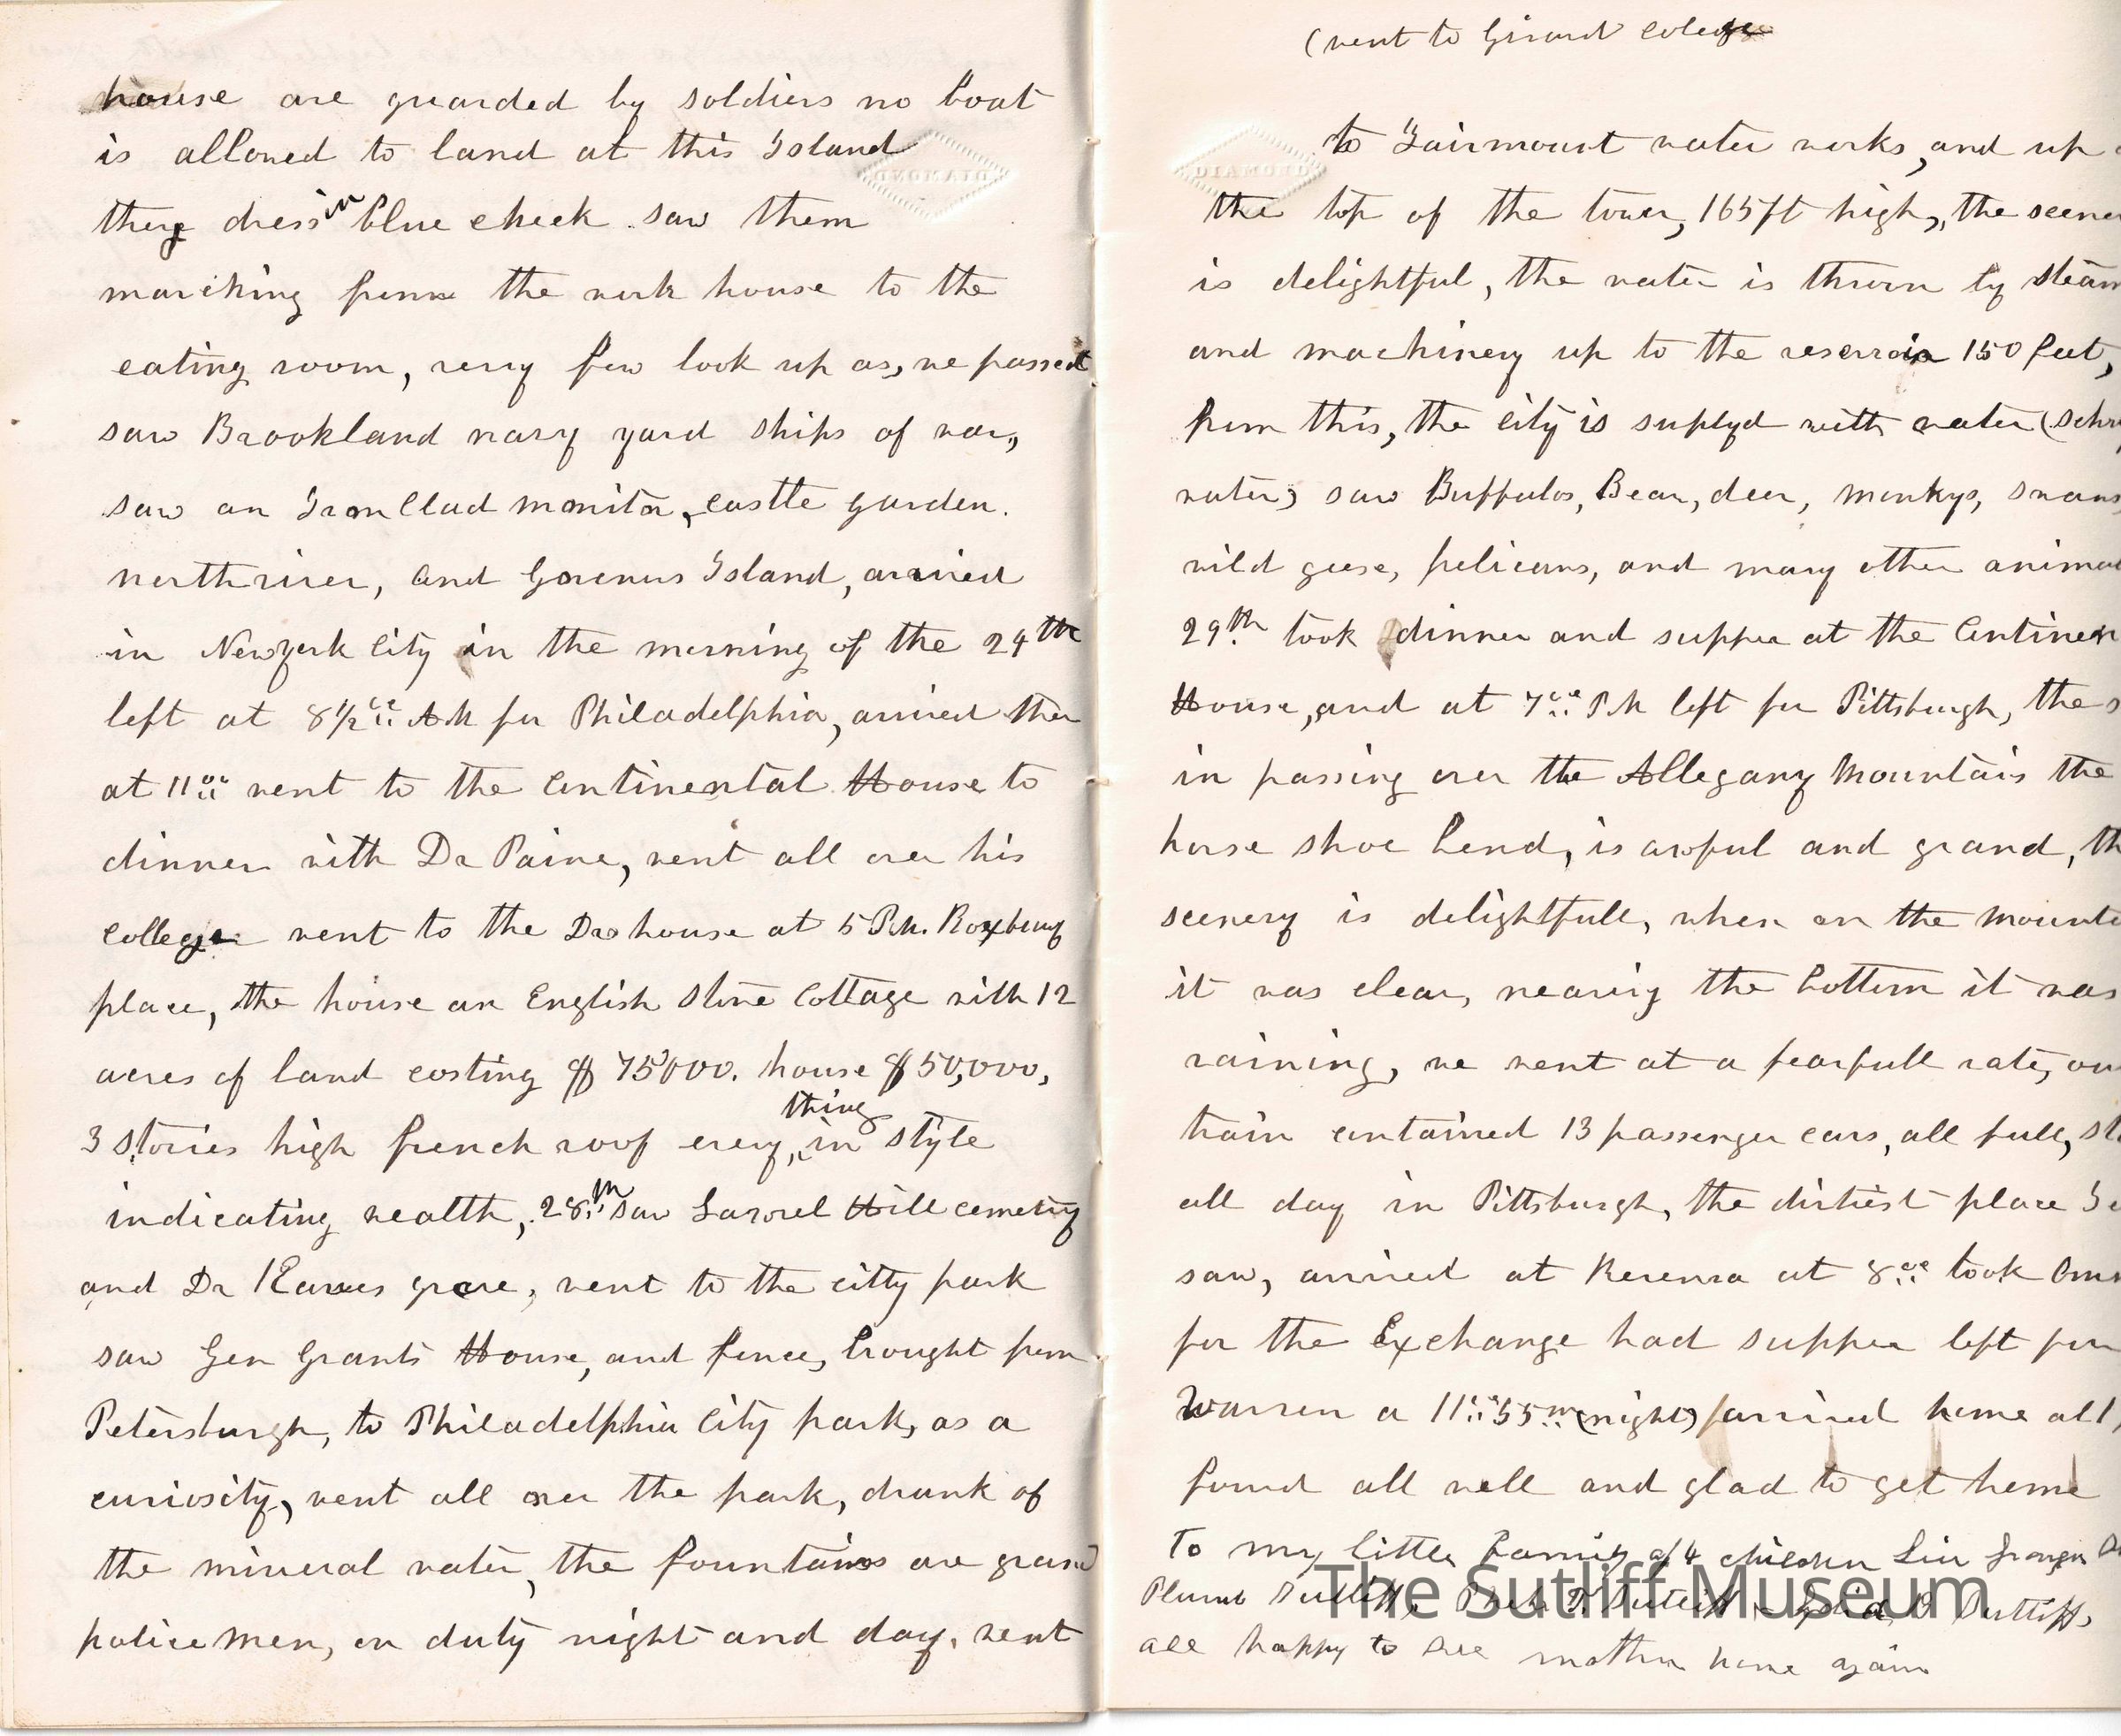 house are guarded by soldiers no boat
is allowed to land at this Island
they dress in blue check saw them
marching from the work house to the
eating room, very few look up as, we passed
saw Brookland navy yard ships of war,
saw an Iron Clad monitor, castle garden.
north river, and Govenus Island, arrived
in Newyork City in the morning of the 24th
left at 8 1/2 AM for Philadelphia, arrived ther
at 11 went to the Continental House to
dinner with Dr Paine, went all over his
College went to the Drs house at 5 P.M. Roxbury
place, the house an English stone Cottage with 12
acres of land costing $75000. house $50,000,
3 stories high french roof every thing in style
indicating wealth, 28th saw Laurel Hill cemetry
and Dr Kanes grave, went to the citty park
saw Gen Grants House, and fence, brought from
Petersburgh, to Philadelphia City park, as a
curiosity, went all over the park, drank of
the mineral water, the fountains are grand
police men, on duty night and day, went
(went to Girard Colege
to Fairmount water works, and up
the top of the tower, 165ft high, the scener
is delightful, the water is thrown by steam
and machinery up to the reservoir 150 feet,
from this, the City is suplyd with water (Schu
water) saw Buffalos, Bear, deer, monkys, swans,
wild geese, pelicans, and many other animal
29th took dinner and supper at the Continen
House, and at 7 P.M left for Pittsburgh, the s
in passing over the Allegany Mountais the
horse shoe bend, is awful and grand, th
scenery is delightfull, when on the mounta
it was clear, nearing the bottom it was
raining, we went at a fearfull rate, our
train contained 13 passenger cars, all full, st
all day in Pittsburgh, the dirtiest place I e
saw, arrived at Revenna at 8 took Omn
for the Exchange had supper left for
Warren a 11 55m (night) arrived home at 1,
found all well and glad to get home
To my little Family of 4 children
Plumb Sutliff, Phebe Sutliff Lydia Sutliff,
all happy to see mother home again
The Sutliff Museum
DIAMOND
DIAMOND